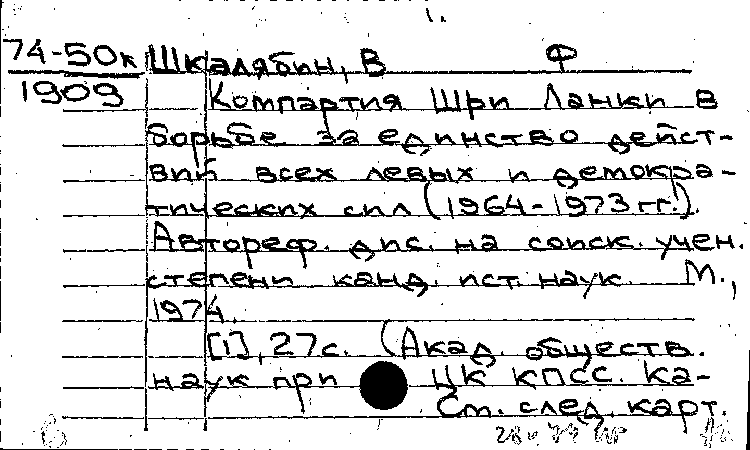 1.
74-50к Шкалябин, В Ф
1909 Компартия Шри Ланки в
борьбе за единство дейст-
вий всех левых и демокра-
тических сил (1964-1973 гг.).
Автореф. дис. на соиск. учен.
степени канд. ист. наук М.,
1974.
[1], 27с. (Акад. обществ.
наук при ЦК КПСС. Ка-
См. след. карт.